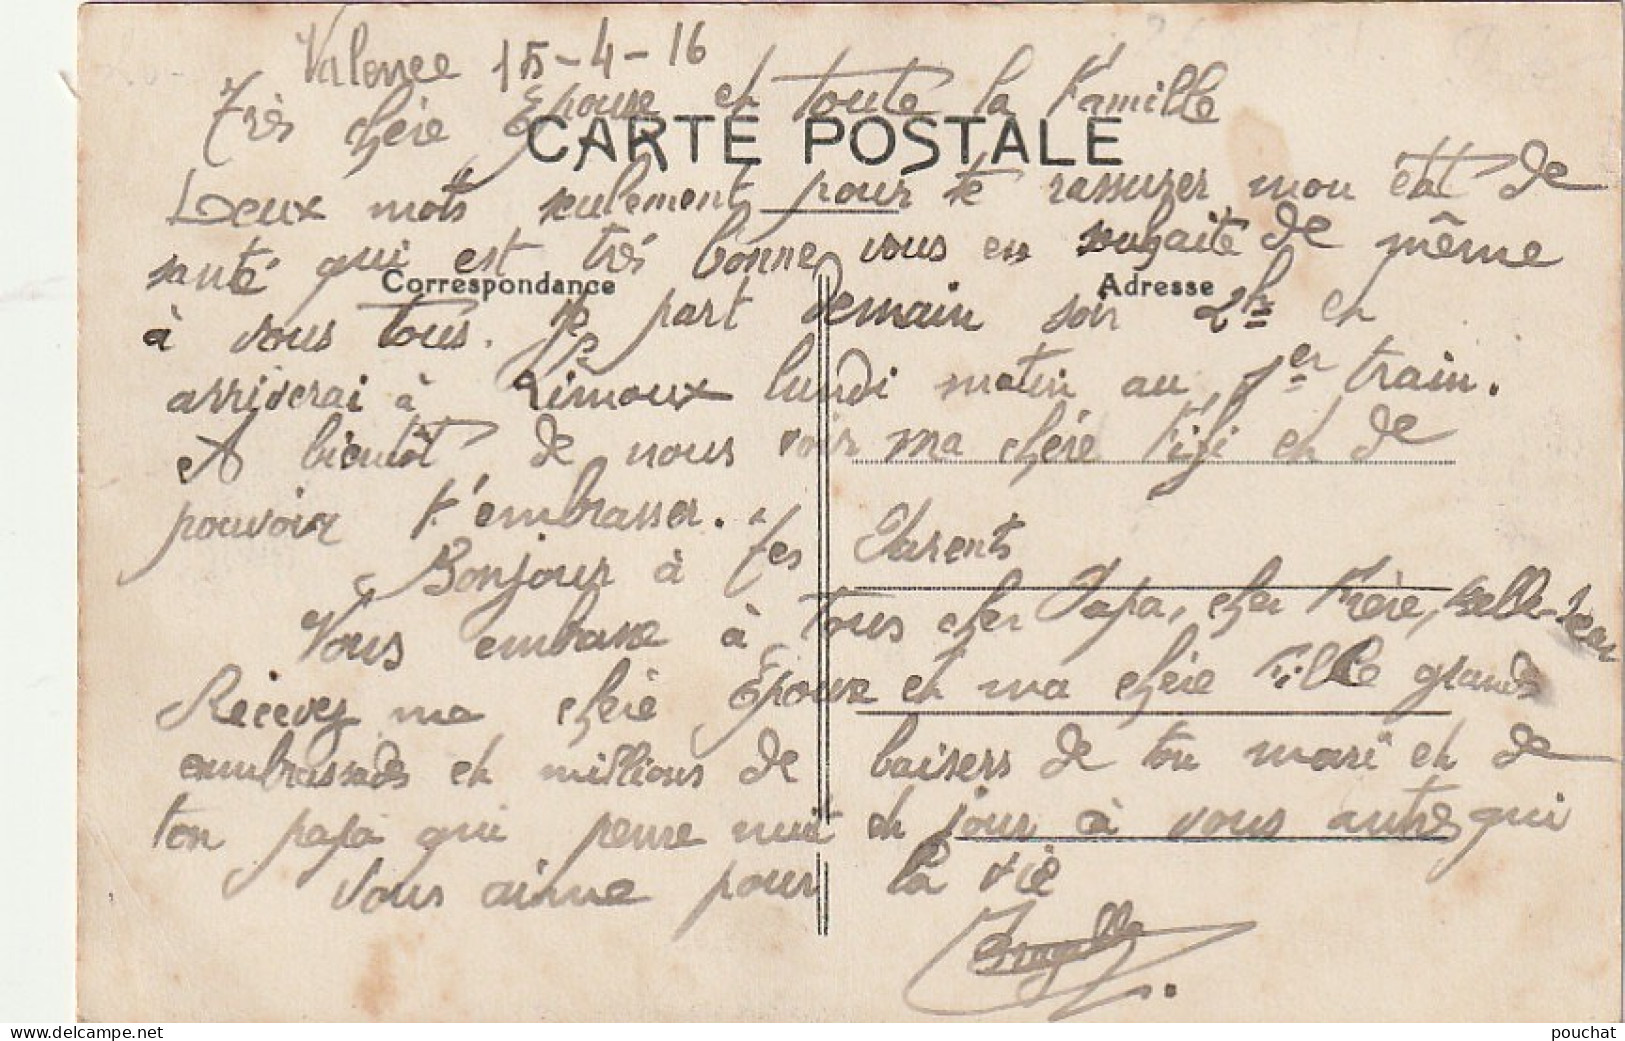 Valence 15-4-16
Très chère Epouse et toute la Famille
CARTE POSTALE
Deux mots seulement pour te rassurer mon état de
santé qui est très bonne vous en souhaite de même
Correspondance
Adresse
à vous tous. Je part demain soir 2h et
arriverai à Limoux lundi matin au 1er train.
A bientôt de nous voir ma chère Fifi et de
pouvoir t'embrasser.
Bonjour à tes Parents
Vous embrasse à tous cher Papa, cher Frère,
Recevez ma chère Epouse et ma chère Fille grands
embrassades et millions de baisers de ton mari et de
ton papa qui pense nuit et jour à vous autres qui
vous aime pour la vie
pouchat
www.delcampe.net